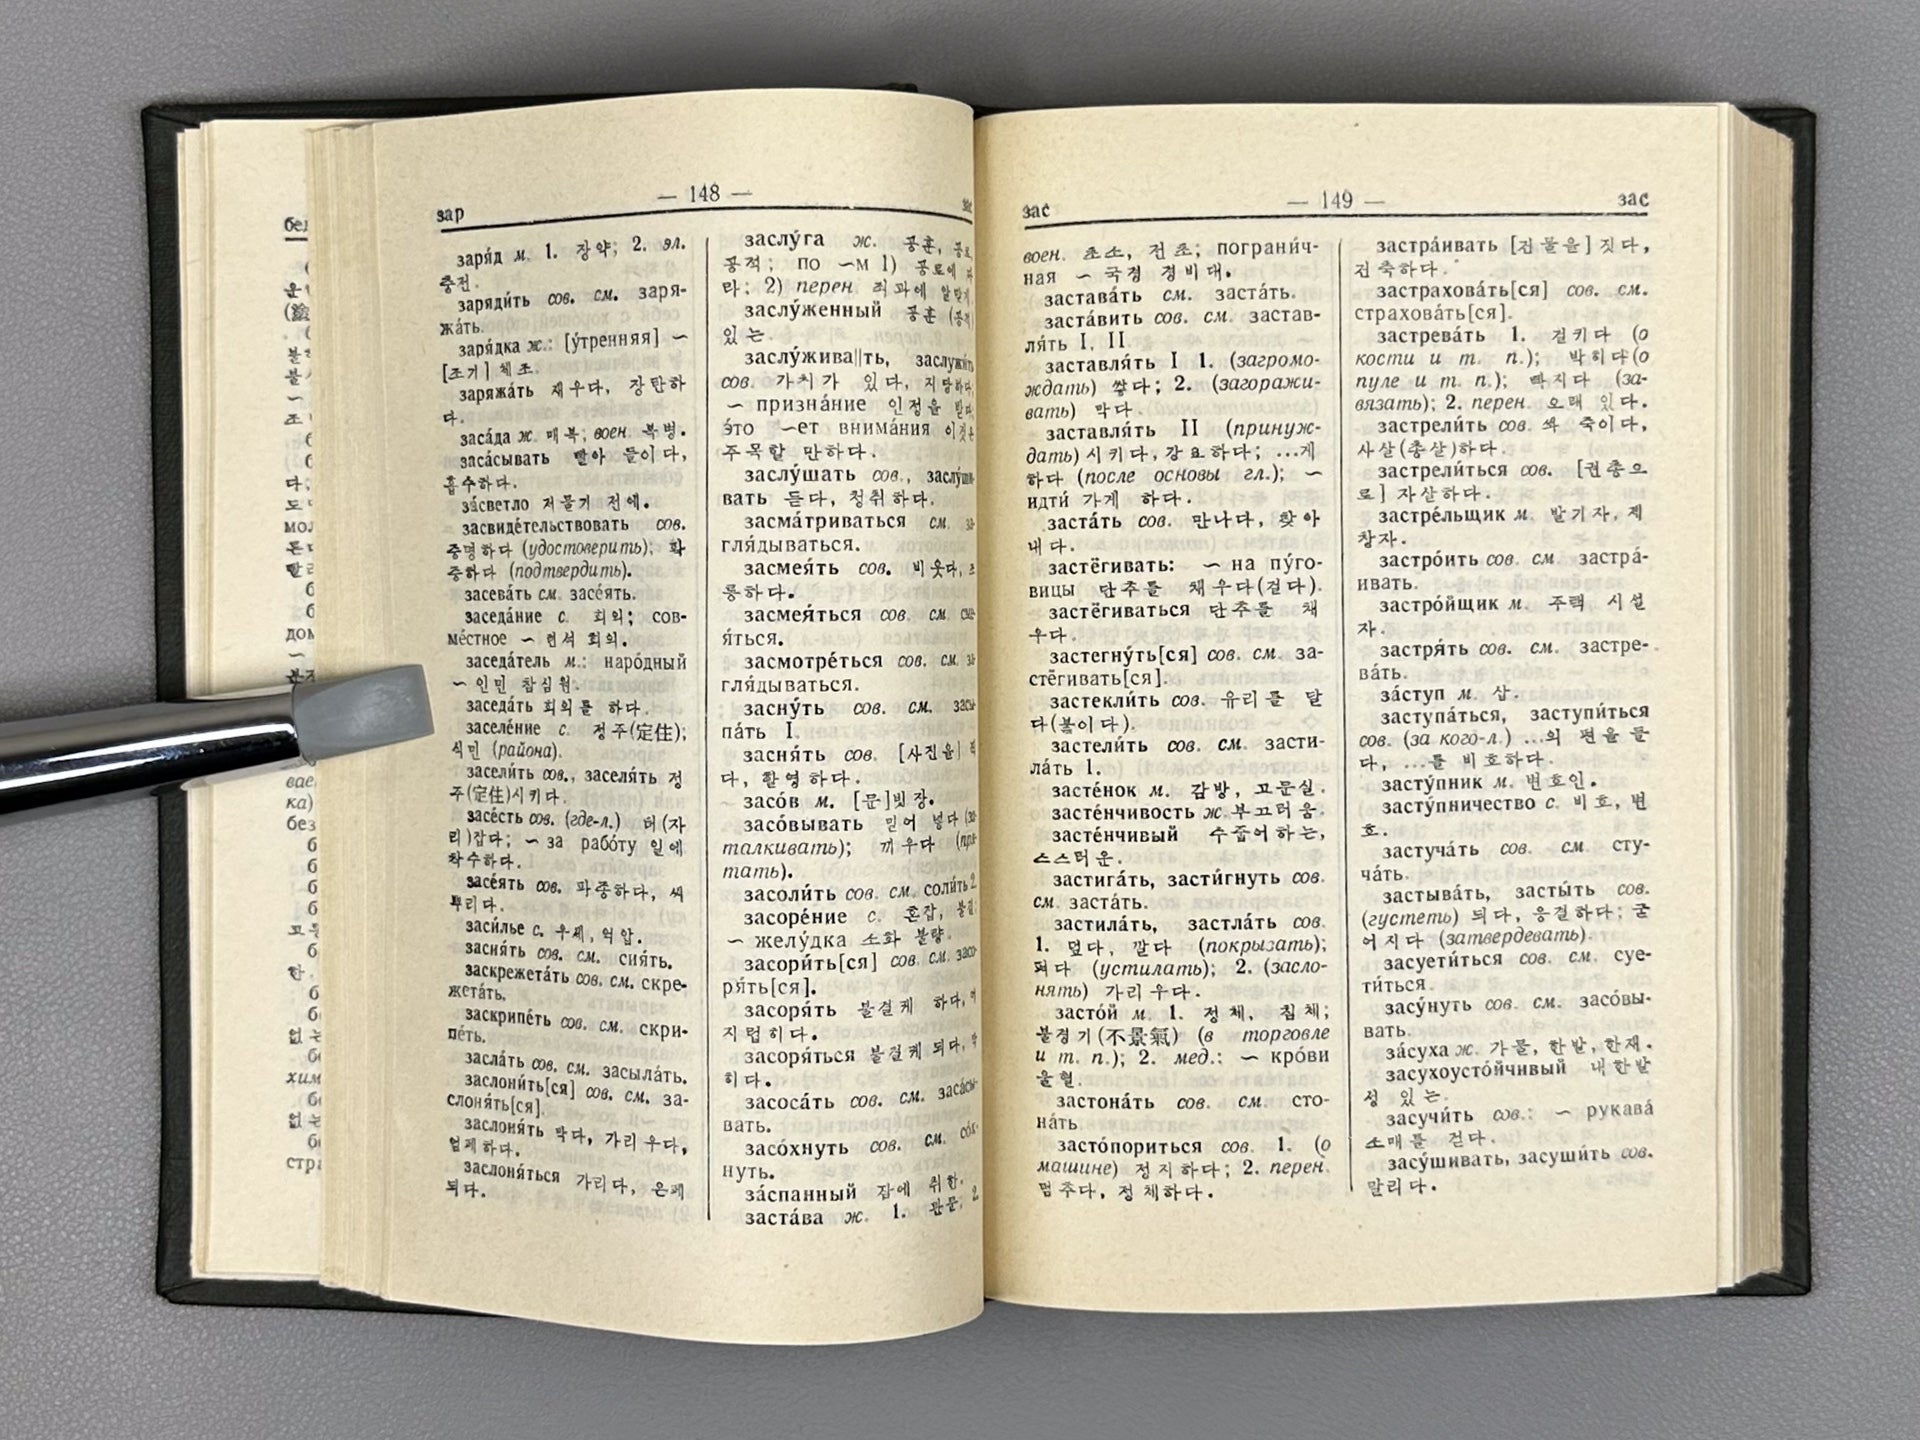 бел
дом
мол
ка)
без
хим
стра
зар
— 148 —
заря́д м. 1. 장약; 2. эл.
충전.
заряди́ть сов. см. заря-
жа́ть.
заря́дка ж.: [у́тренняя] ~
[조기] 체조.
заряжа́ть 재우다, 장탄하
다.
заса́да ж. 매복; воен. 복병.
заса́сывать 빨아 들이다,
흡수하다.
за́светло 저물기 전에.
засвиде́тельствовать сов.
증명하다 (удостоверить); 확
증하다 (подтвердить).
засева́ть см. засе́ять.
заседа́ние с. 회의; сов-
ме́стное ~ 련석 회의.
заседа́тель м.: наро́дный
~ 인민 참심원.
заседа́ть 회의를 하다.
заселе́ние с. 정주(定住);
식민 (района).
засели́ть сов., заселя́ть 정
주(定住)시키다.
засе́сть сов. (где-л.) 터(자
리)잡다; ~ за рабо́ту 일에
착수하다.
засе́ять сов. 파종하다, 씨
뿌리다.
заси́лье с. 우세, 억압.
засия́ть сов. см. сия́ть.
заскрежета́ть сов. см. скре-
жета́ть.
заскрипе́ть сов. см. скри-
пе́ть.
засла́ть сов. см. засыла́ть.
заслони́ть[ся] сов. см. за-
слоня́ть[ся].
заслоня́ть 막다, 가리우다,
엄페하다.
заслоня́ться 가리다, 은페
되다.
заслу́га ж. 공훈, 공로,
공적; по ~м 1) 공로에 따
라; 2) перен. 죄과에 알맞게.
заслу́женный 공훈 (공적)
있는.
заслу́жива||ть, заслужи́ть
сов. 가치가 있다, 지당하다,
~ призна́ние 인정을 받다,
э́то ~ет внима́ния 이것은
주목할 만하다.
заслу́шать сов., заслу́ши-
вать 듣다, 청취하다.
засма́триваться см. за-
гля́дываться.
засмея́ть сов. 비웃다, 조
롱하다.
засмея́ться сов. см. сме-
я́ться.
засмотре́ться сов. см. за-
гля́дываться.
засну́ть сов. см. засы-
па́ть I.
засня́ть сов. [사진을] 찍
다, 촬영하다.
засо́в м. [문]빗장.
засо́вывать 밀어 넣다 (за-
талкивать); 끼우다 (пря-
тать).
засоли́ть сов. см. соли́ть 2.
засоре́ние с. 혼잡, 불결;
~ желу́дка 소화 불량.
засори́ть[ся] сов. см. засо-
ря́ть[ся].
засоря́ть 불결케 하다, 어
지럽히다.
засоря́ться 불결케 되다, 막
히다.
засоса́ть сов. см. заса́сы-
вать.
засо́хнуть сов. см. со́х-
нуть.
за́спанный 잠에 취한.
заста́ва ж. 1. 관문; 2.
зас
— 149 —
зас
воен. 초소, 전초; пограни́ч-
ная ~ 국경 경비대.
застава́ть см. заста́ть.
заста́вить сов. см. застав-
ля́ть I, II
заставля́ть I 1. (загромо-
ждать) 쌓다; 2. (загоражи-
вать) 막다.
заставля́ть II (принуж-
дать) 시키다, 강요하다; ...게
하다 (после основы гл.); ~
идти́ 가게 하다.
заста́ть сов. 만나다, 찾아
내다.
застёгивать: ~ на пу́го-
вицы 단추를 채우다(걸다).
застёгиваться 단추를 채
우다.
застегну́ть[ся] сов. см. за-
стёгивать[ся].
застекли́ть сов. 유리를 달
다(붙이다).
застели́ть сов. см. засти-
ла́ть 1.
засте́нок м. 감방, 고문실.
засте́нчивость ж. 부끄러움.
засте́нчивый 수줍어하는,
스스러운.
застига́ть, засти́гнуть сов.
см. заста́ть.
застила́ть, застла́ть сов.
1. 덮다, 깔다 (покрывать);
펴다 (устилать); 2. (засло-
нять) 가리우다.
засто́й м. 1. 정체, 침체;
불경기(不景氣) (в торговле
и т. п.); 2. мед.: ~ кро́ви
울혈.
застона́ть сов. см. сто-
на́ть
засто́пориться сов. 1. (о
машине) 정지하다; 2. перен.
멈추다, 정체하다.
застра́ивать [건물을] 짓다,
건축하다.
застрахова́ть[ся] сов. см.
страхова́ть[ся].
застрева́ть 1. 걸키다 (о
кости и т. п.); 박히다(о
пуле и т. п.); 빠지다 (за-
вязать); 2. перен. 오래 있다.
застрели́ть сов. 쏴 죽이다,
사살(총살)하다.
застрели́ться сов. [권총으
로] 자살하다.
застре́льщик м. 발기자, 제
창자.
застро́ить сов. см. застра́-
ивать.
застро́йщик м. 주택 시설
자.
застря́ть сов. см. застре-
ва́ть.
за́ступ м. 삽.
заступа́ться, заступи́ться
сов. (за кого-л.) ...의 편을 들
다, ...를 비호하다.
засту́пник м. 변호인.
засту́пничество с. 비호, 변
호.
застуча́ть сов. см. сту-
ча́ть.
застыва́ть, засты́ть сов.
(густеть) 되다, 응결하다; 굳
어지다 (затвердевать).
засуети́ться сов. см. суе-
ти́ться.
засу́нуть сов. см. засо́вы-
вать.
за́суха ж. 가물, 한발, 한재.
засухоусто́йчивый 내한발
성 있는.
засучи́ть сов.: ~ рукава́
소매를 걷다.
засу́шивать, засуши́ть сов.
말리다.